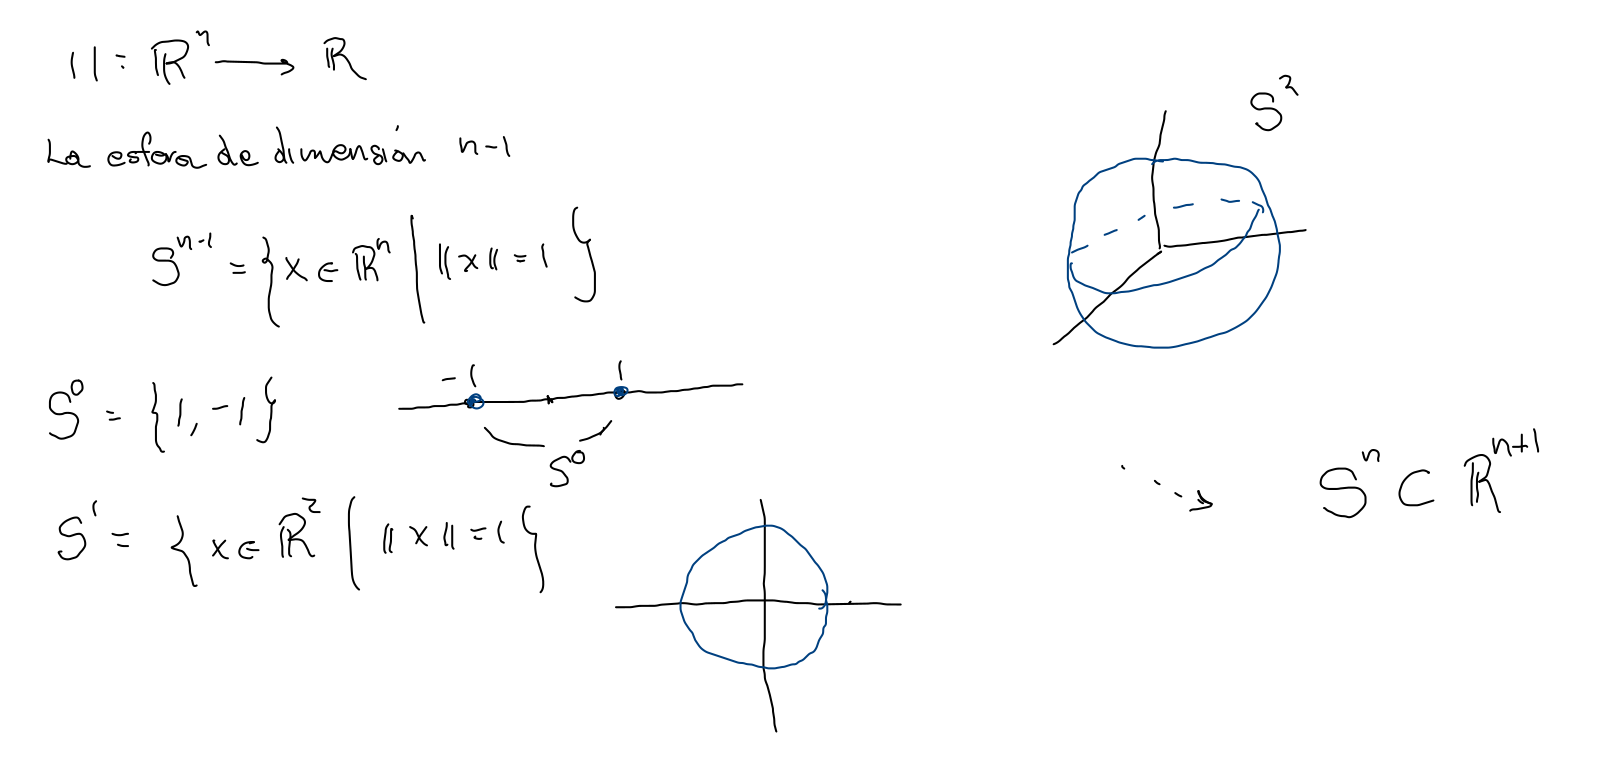 || : ℝⁿ ⟶ ℝ
La esfera de dimensión n-1
Sⁿ⁻¹ = { x ∈ ℝⁿ | ||x|| = 1 }
S⁰ = {1, -1}
-1 1
S⁰
S¹ = { x ∈ ℝ² | ||x|| = 1 }
S²
Sⁿ ⊂ ℝⁿ⁺¹